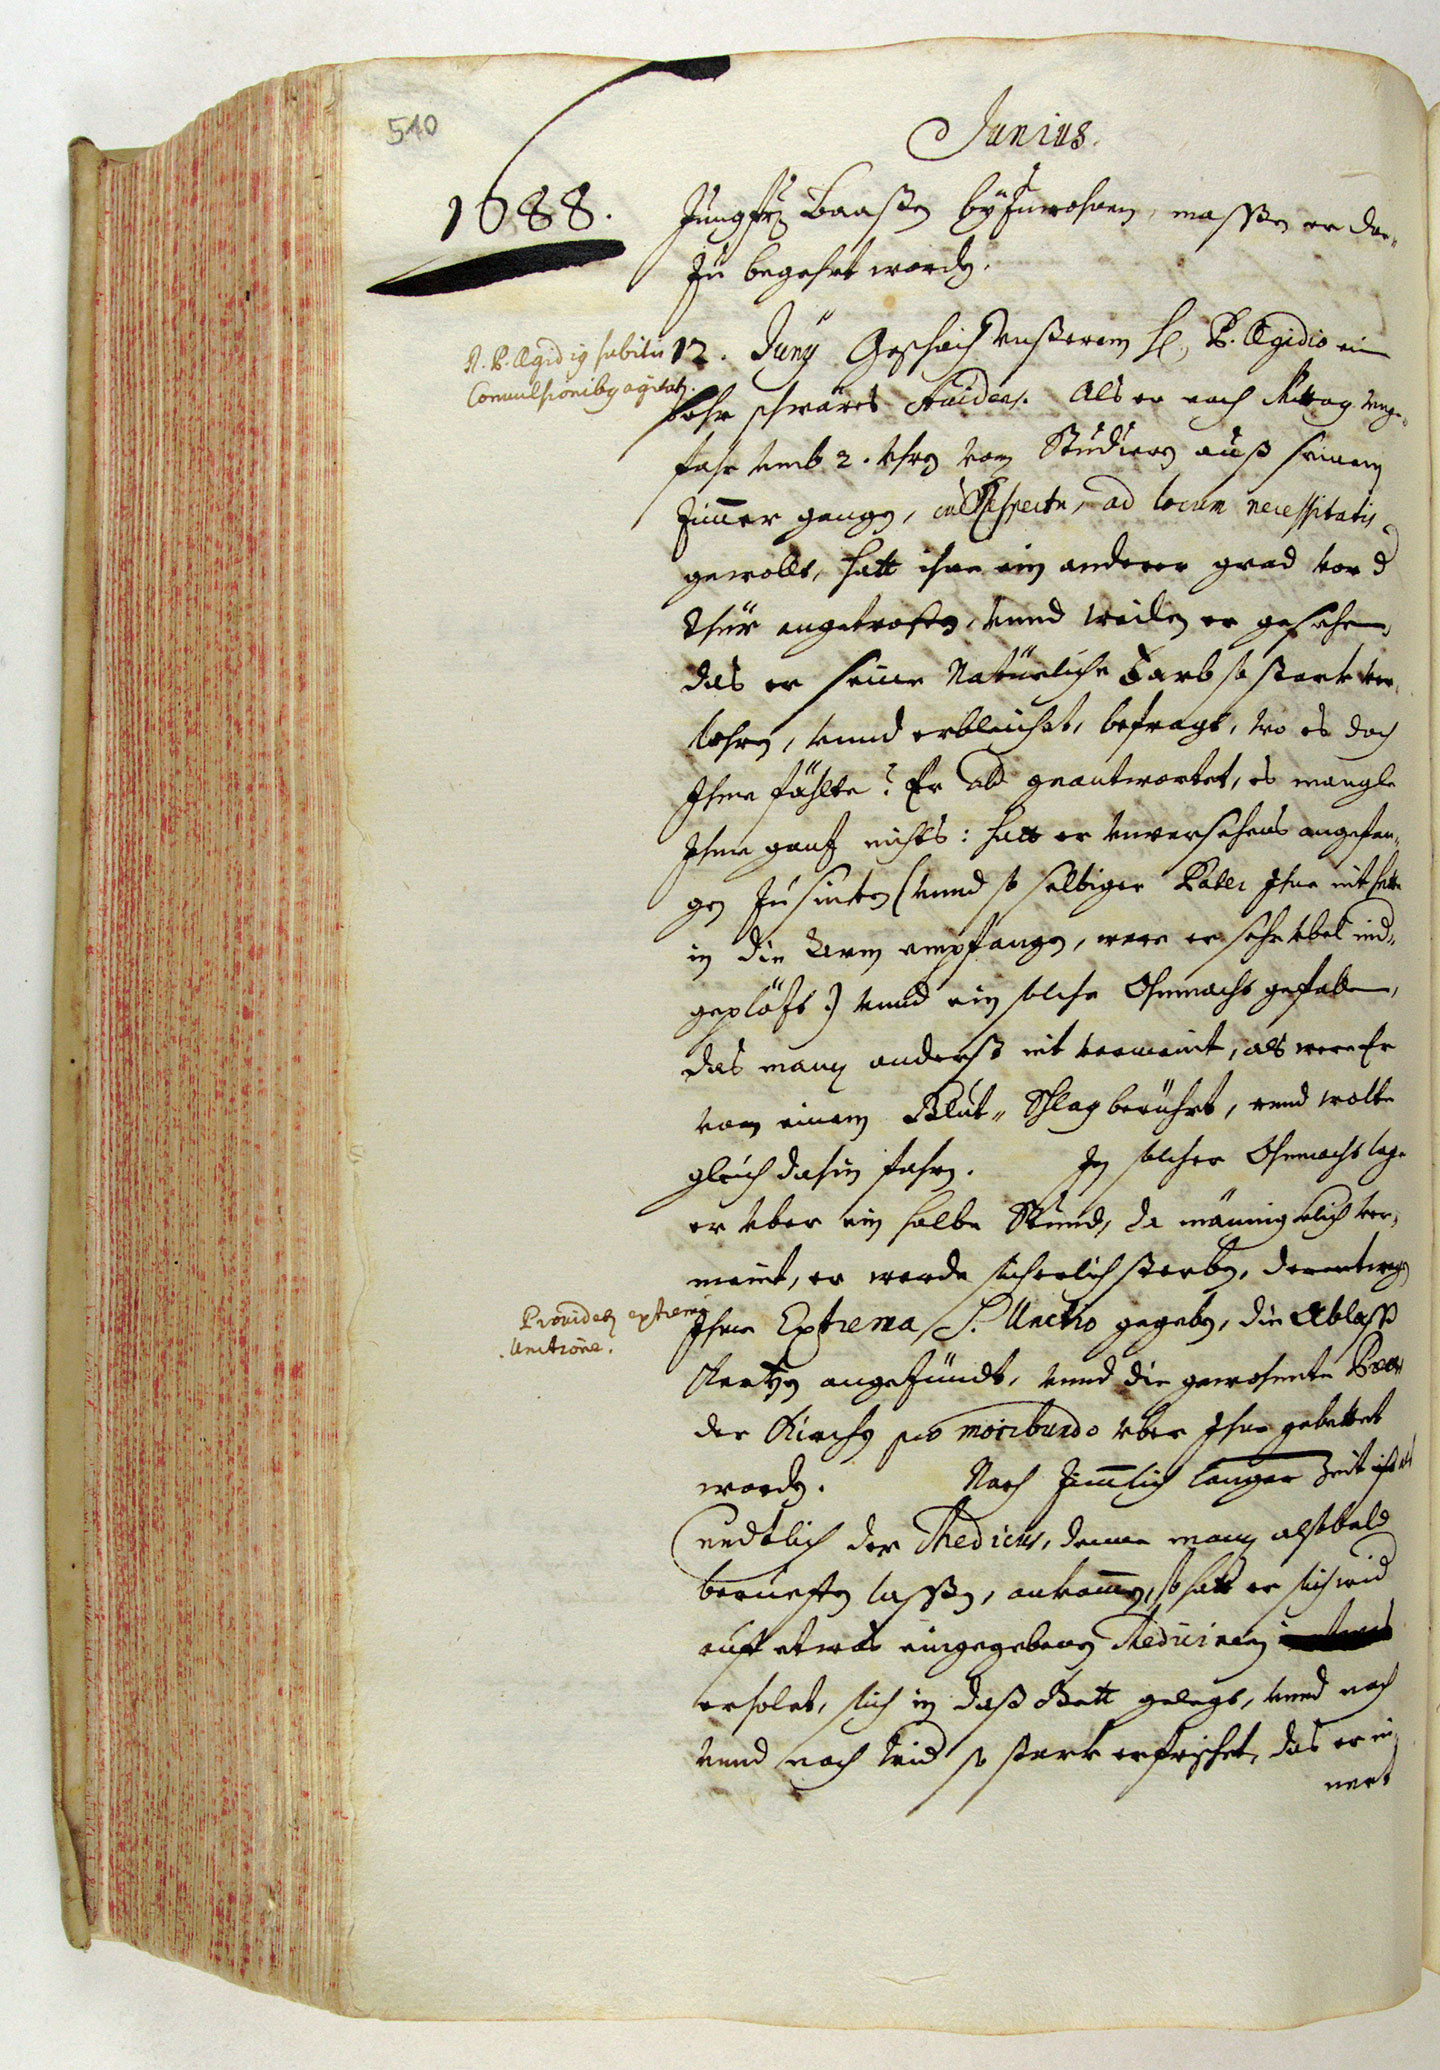 510
Junius.
1688.
Jungfr. Baasen byzuwohnen, massen er dar-
zu begehrt worden.
R. P. Ægidius subitis
Convulsionibus agitat.
12. Juny Geschich vnserem H. P. Ægidio ein
sehr schwäres Accidens. Als er nach Mittag vnge-
fahr vmb 2. Vhren vom Studieren auß seinem
Zimmer gangen, cum Respectu, ad locum necessitatis
gewollt, hatt ihne ein anderer grad vor d
Thür angetroffen, vnnd weilen er gesehen,
das er seine Natürliche Farb so stark ver-
lohren, vnnd erbleichet, befragt, wo es doch
Ihme fählte? Er ab geantwortet, es mangle
Ihme ganz nichts: hatt er vnversehens angefan-
gen zu sincken (vnnd so selbiger Pater Ihne nit hette
in die Arm empfangen, were er sehr vbel nid-
geplötzt) vnnd ein solche Ohnmacht gefallen,
das man anderst nit vermeint, als were Er
von einem Blut-Schlag berührt, vnnd wolte
gleich dahin fahren. In solcher Ohnmacht lage
er vber ein halbe Stund, da männigklich ver-
meint, er werde sicherlich sterben, derentwegen
Providetur extrema
Unctione.
Ihme Extrema S. Unctio gegeben, die Ablass
Kertzen angezündt, vnnd die gewohnte
der Kirchen pro moribundo vber Ihne gebettet
worden. Nach zimmlich langer Zeit ist
endtlich der Medicus, denne man alsobald
berueffen lassen, ankommen, so hatt er sich wid
auff etwas eingegebenen Medicinen
erholet, sich in daß Bett gelegt, vnnd nach
vnnd nach wid so stark erfrischet, das er in-
nert